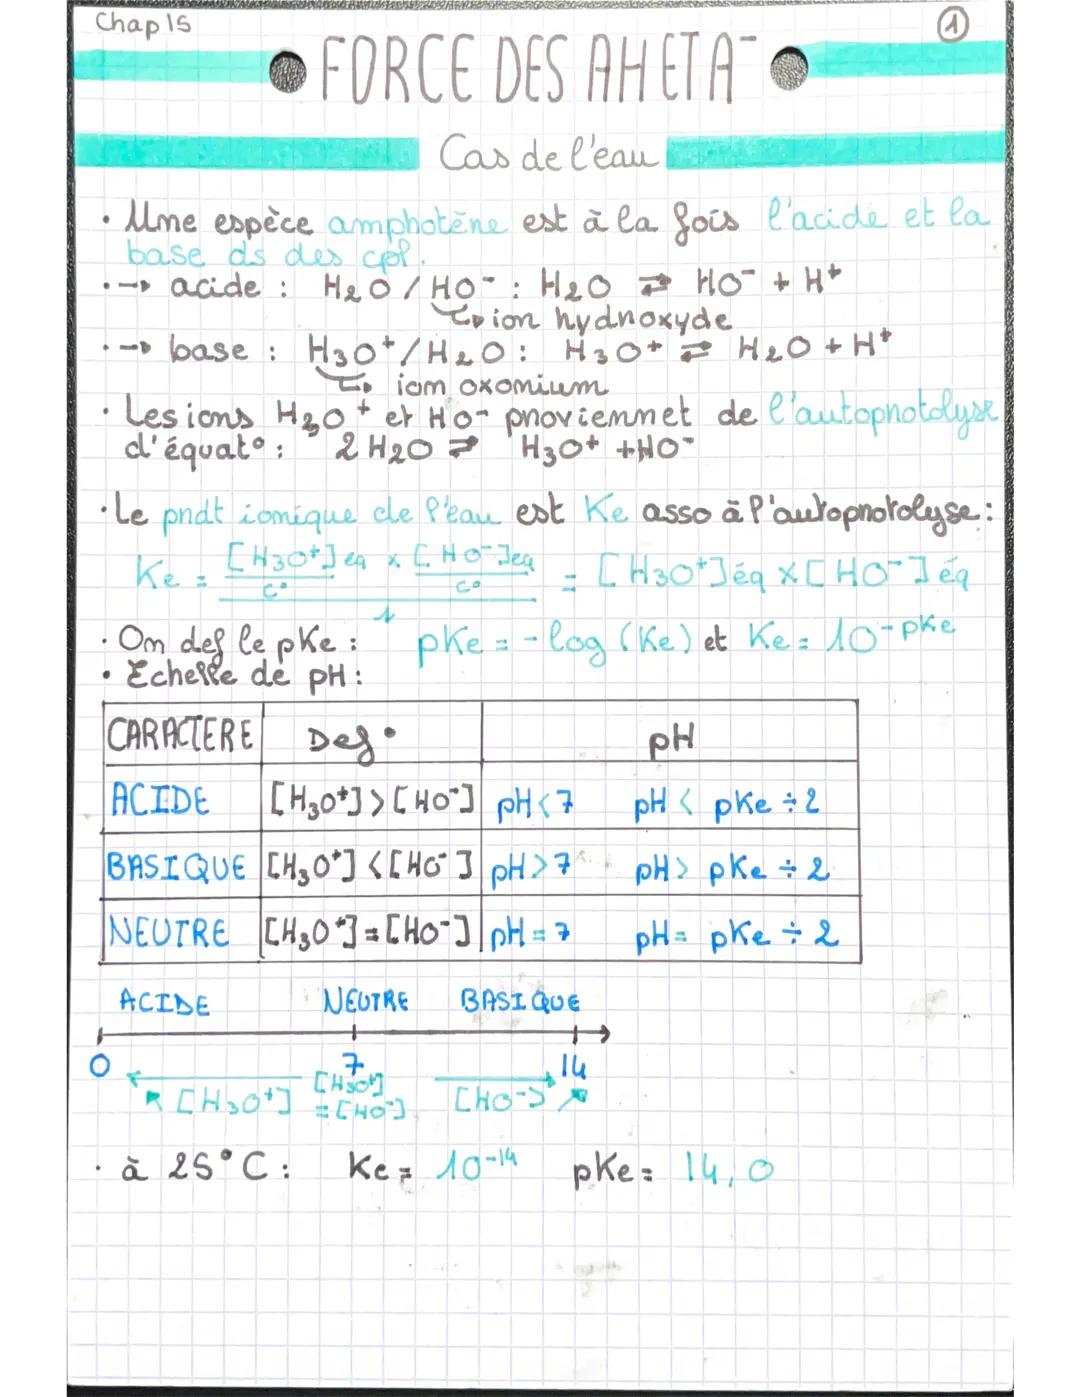 Chap 15
1
FORCE DES AH ET A⁻
Cas de l'eau
• Une espèce amphotère est à la fois l'acide et la
base ds des cpl.
• → acide : H₂O / HO⁻ : H₂O ⇄ HO⁻ + H⁺
↳ ion hydroxyde
• → base : H₃O⁺/H₂O : H₃O⁺ ⇄ H₂O + H⁺
↳ ion oxonium
• Les ions H₃O⁺ et HO⁻ proviennet de l'autoprotolyse
d'équat° : 2 H₂O ⇄ H₃O⁺ + HO⁻
• Le prdt ionique de l'eau est Ke asso à l'autoprotolyse :
Ke = [H₃O⁺]éq/c° × [HO⁻]éq/c° / 1 = [H₃O⁺]éq × [HO⁻]éq
• On def le pKe : pKe = - log (Ke) et Ke = 10⁻ᵖᴷᵉ
• Echelle de pH :
CARACTERE Def° pH
ACIDE [H₃O⁺] > [HO⁻] pH < 7 pH < pKe ÷ 2
BASIQUE [H₃O⁺] < [HO⁻] pH > 7 pH > pKe ÷ 2
NEUTRE [H₃O⁺] = [HO⁻] pH = 7 pH = pKe ÷ 2
ACIDE NEUTRE BASIQUE
0 7 14
↖ [H₃O⁺] [H₃O⁺] [HO⁻] ↗
= [HO⁻]
• à 25°C : Ke = 10⁻¹⁴ pKe = 14,0